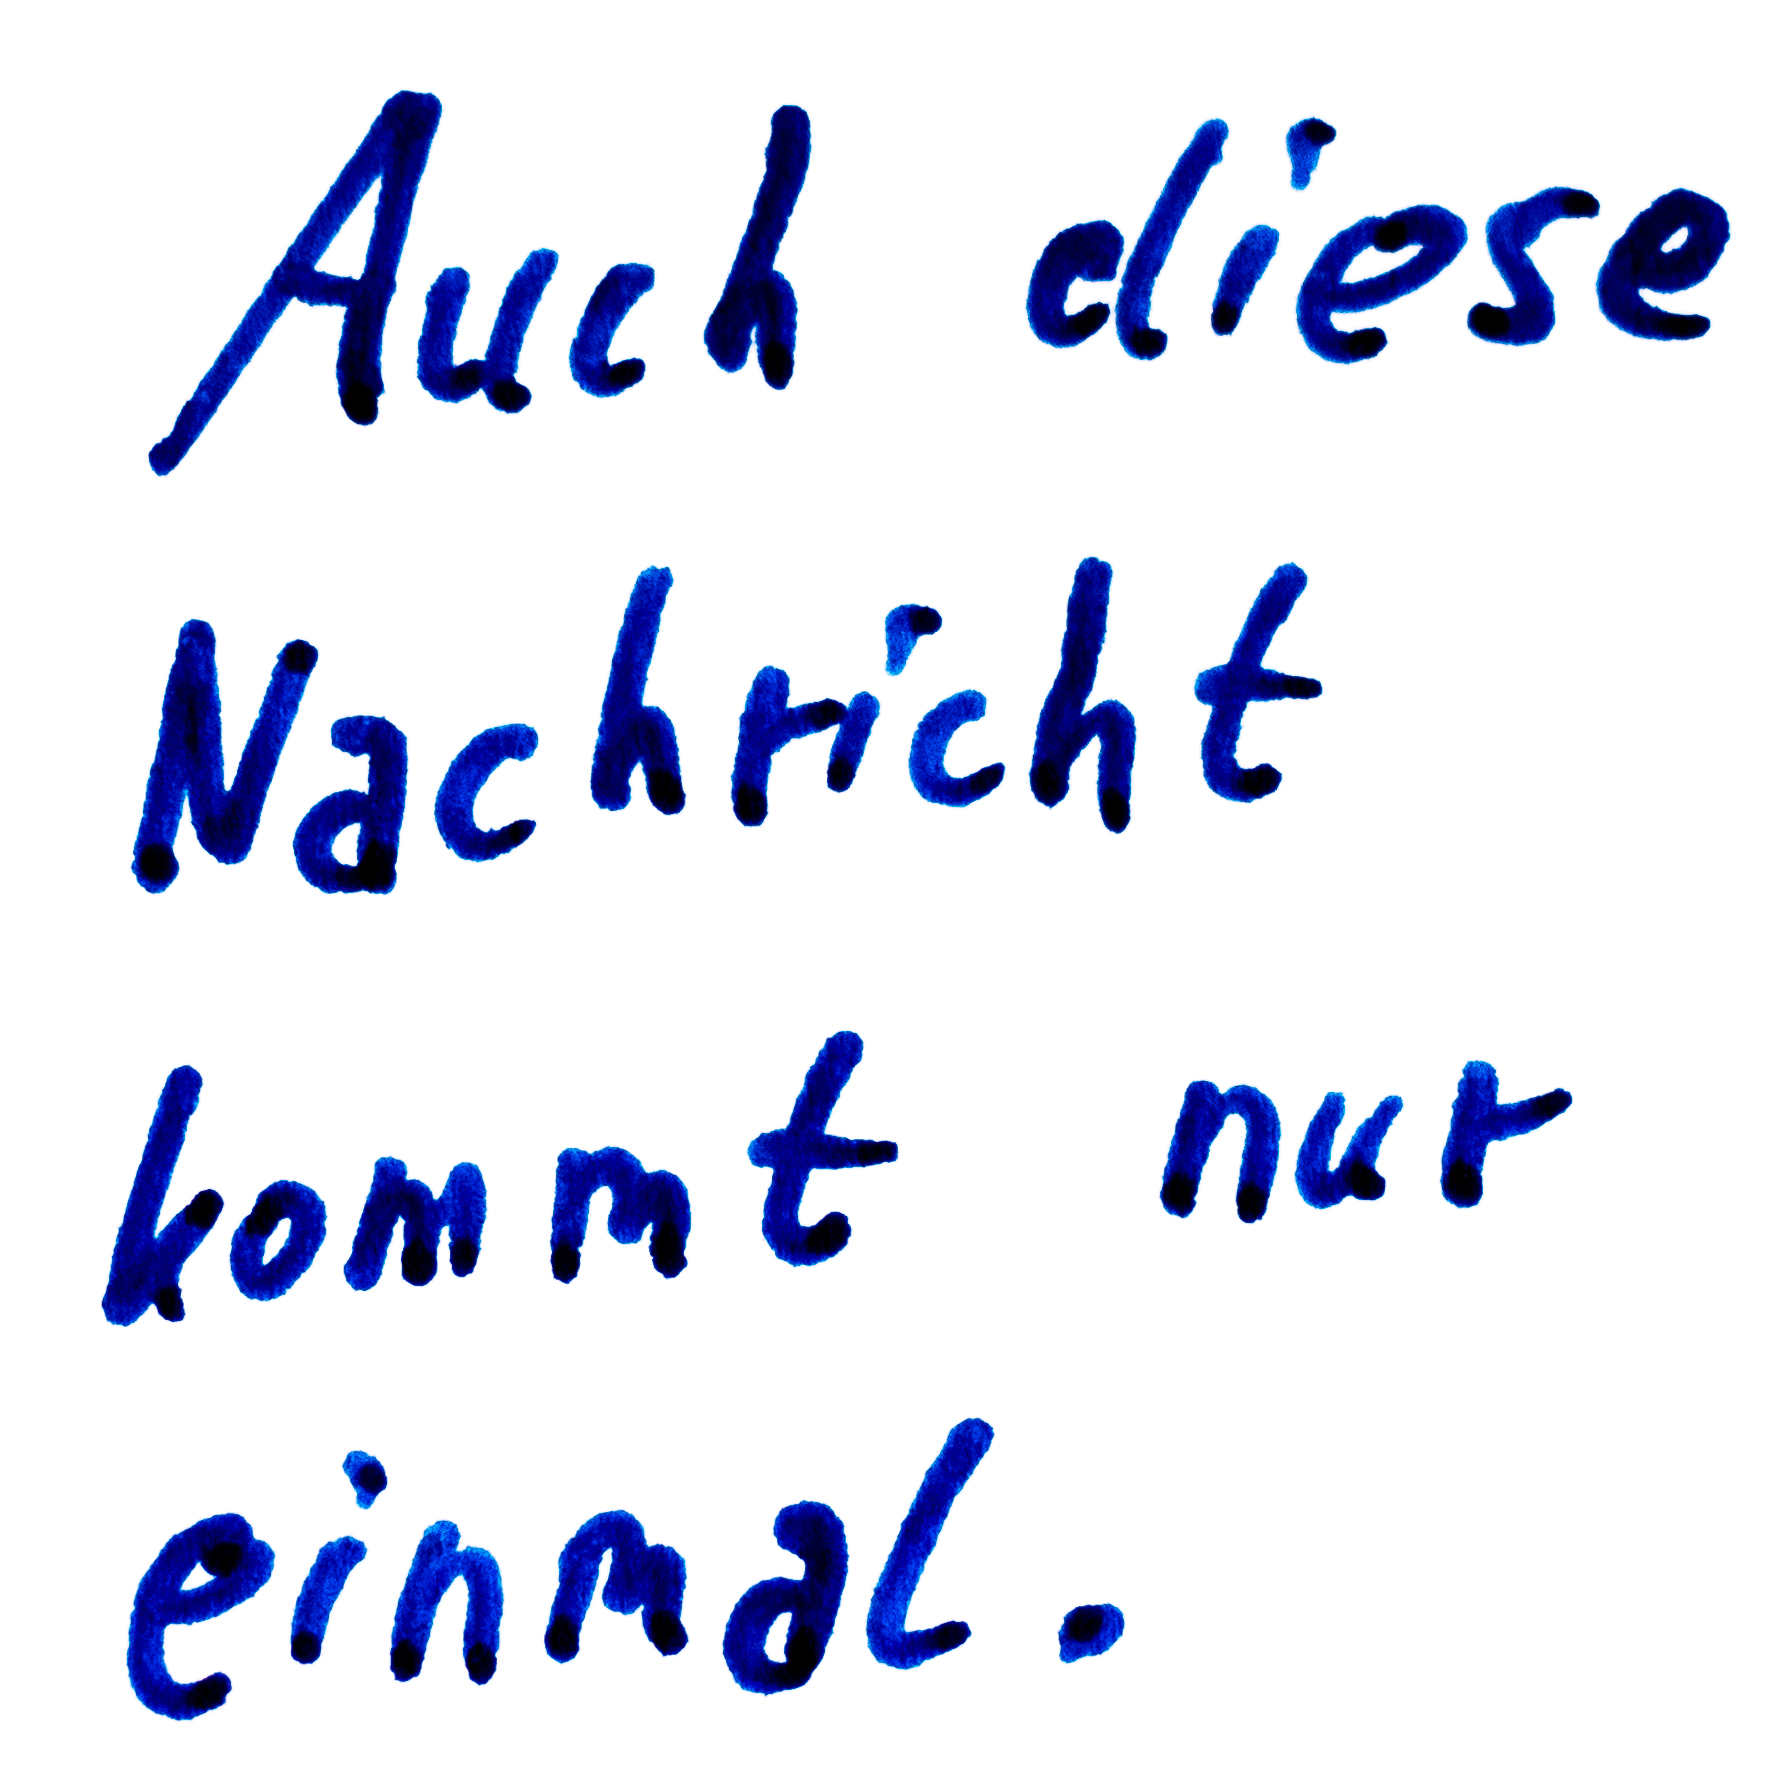 Auch diese
Nachricht
kommt nur
einmal.